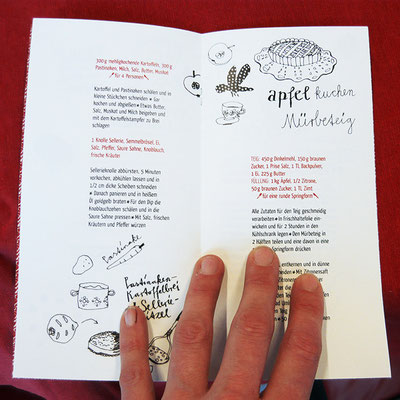 300 g mehligkochende Kartoffeln, 300 g
Pastinaken, Milch, Salz, Butter, Muskat
für 4 Personen
Kartoffel und Pastinaken schälen und in
kleine Stückchen schneiden • Gar
kochen und abgießen • Etwas Butter,
Salz, Muskat und Milch beigeben und
mit dem Kartoffelstampfer zu Brei
schlagen
1 Knolle Sellerie, Semmelbrösel, Ei,
Salz, Pfeffer, Saure Sahne, Knoblauch,
frische Kräuter
Sellerieknolle abbürsten, 5 Minuten
vorkochen, abkühlen lassen und in
1/2 cm dicke Scheiben schneiden
• Danach panieren und in heißem
Öl braten • Für den Dip die
Knoblauchzehen schälen und in die
Saure Sahne pressen • Mit Salz, frischen
Kräutern und Pfeffer würzen
Pastinake
Pastinaken-
Kartoffelbrei
Sellerie-
apfel kuchen
Mürbeteig
TEIG: 450 g Dinkelmehl, 150 g braunen
Zucker, 1 Prise Salz, 1 TL Backpulver,
1 Ei, 225 g Butter
FÜLLUNG: 1 kg Äpfel, 1/2 Zitrone,
50 g braunen Zucker, 1 TL Zimt
für eine runde Springform
Alle Zutaten für den Teig geschmeidig
verarbeiten • In Frischhaltefolie ein-
wickeln und für 2 Stunden in den
Kühlschrank legen • Den Mürbteig in
2 Hälften teilen und eine davon in eine
Springform drücken
entkernen und in dünne